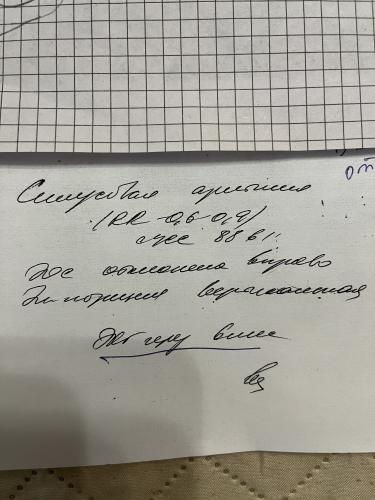 от
Синусовая аритмия
(RR-0,6-0,9)
чсс 88 в 1'.
Эос отклонена вправо
Эл позиция вертикальная